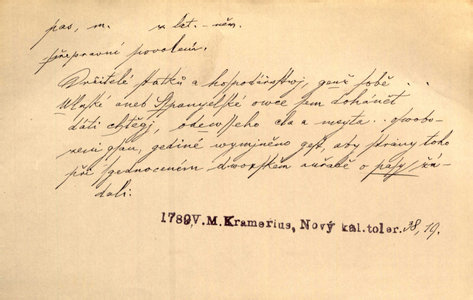 pas, m. x lat.-něm.
přepravní povolení.
Držitelé statků a hospodářstwj, genž sobě . .
Wlaské aneb Sspanyelské owce sem dohánět
dáti chtěgj, odewsseho cla a meyta . . swobo-
zeni gsau; gedině wymjněno gest, aby strany toho
při sgednoceném dworském auřadě o pasy žá-
dali.
1789, V. M. Kramerius, Nový kal. toler. 38, 19.